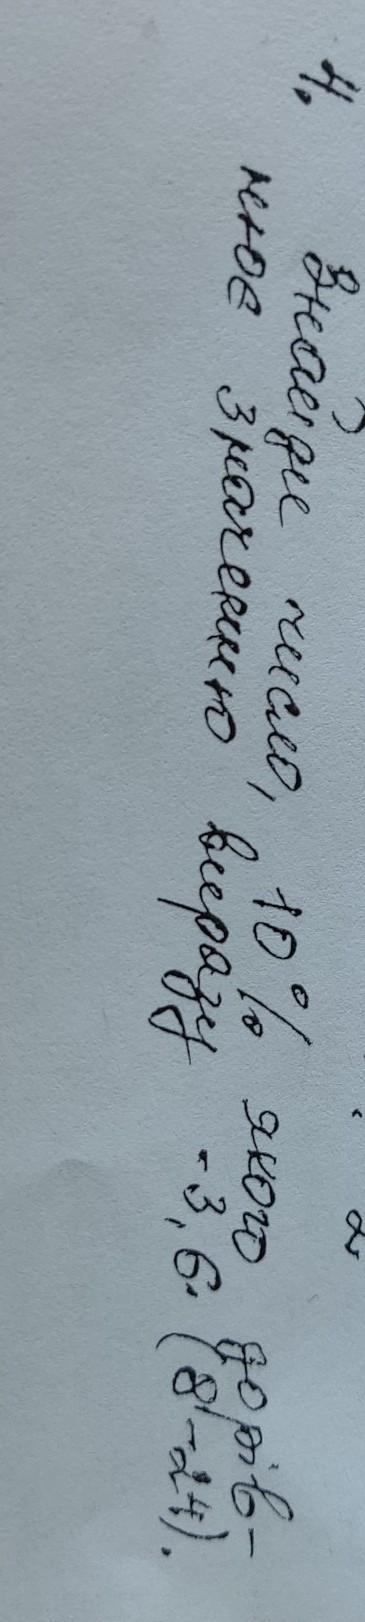 4. Знайди число, 10% якого дорів-
нює значенню виразу -3,6·(8-24).